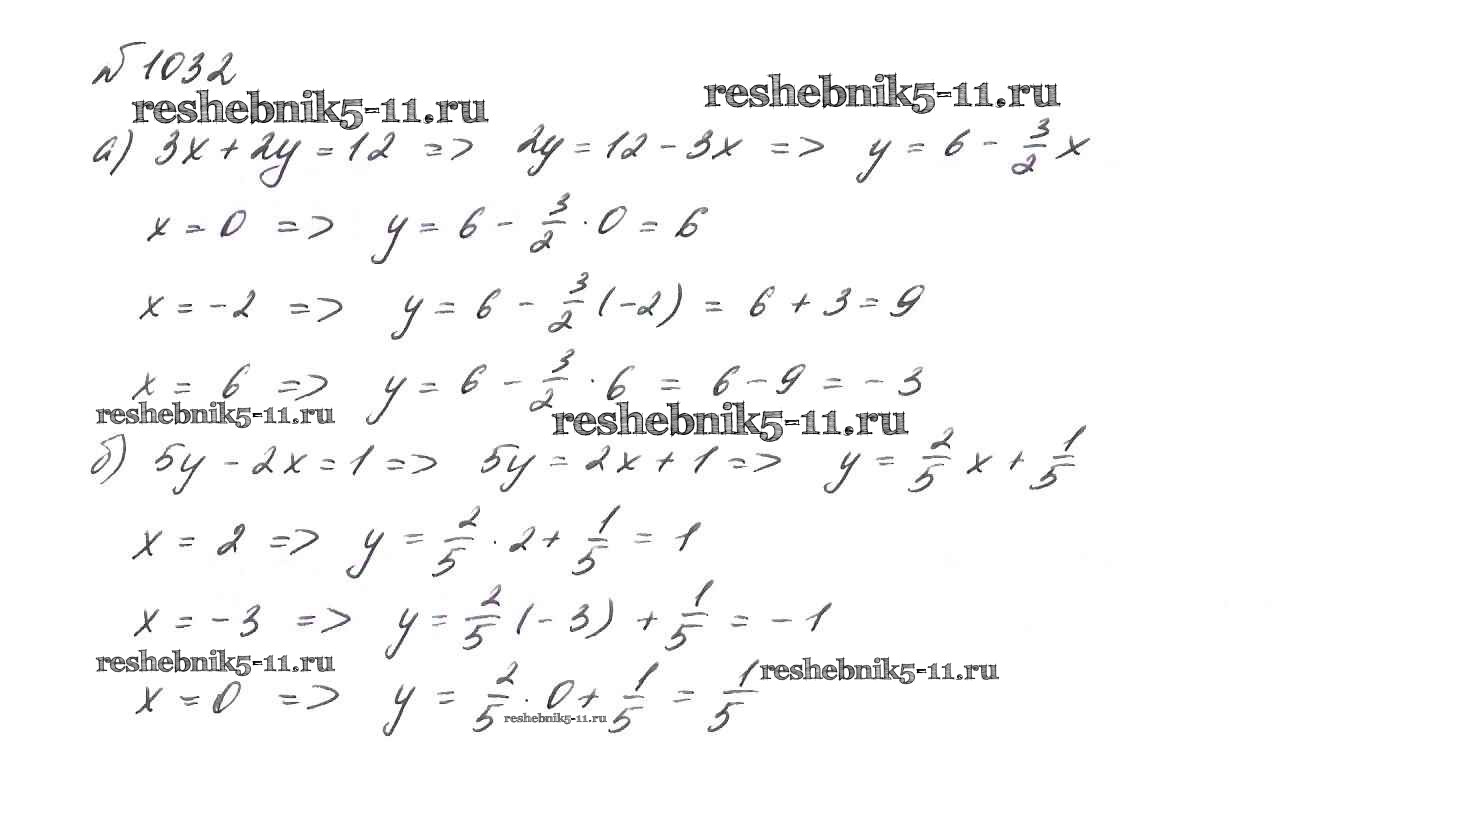 № 1032
reshebnik5-11.ru reshebnik5-11.ru
а) 3x + 2y = 12 => 2y = 12 - 3x => y = 6 - 3/2 x
x = 0 => y = 6 - 3/2 · 0 = 6
x = -2 => y = 6 - 3/2 (-2) = 6 + 3 = 9
x = 6 => y = 6 - 3/2 · 6 = 6 - 9 = -3
reshebnik5-11.ru reshebnik5-11.ru
б) 5y - 2x = 1 => 5y = 2x + 1 => y = 2/5 x + 1/5
x = 2 => y = 2/5 · 2 + 1/5 = 1
x = -3 => y = 2/5 (-3) + 1/5 = -1
reshebnik5-11.ru reshebnik5-11.ru
x = 0 => y = 2/5 · 0 + 1/5 = 1/5
reshebnik5-11.ru